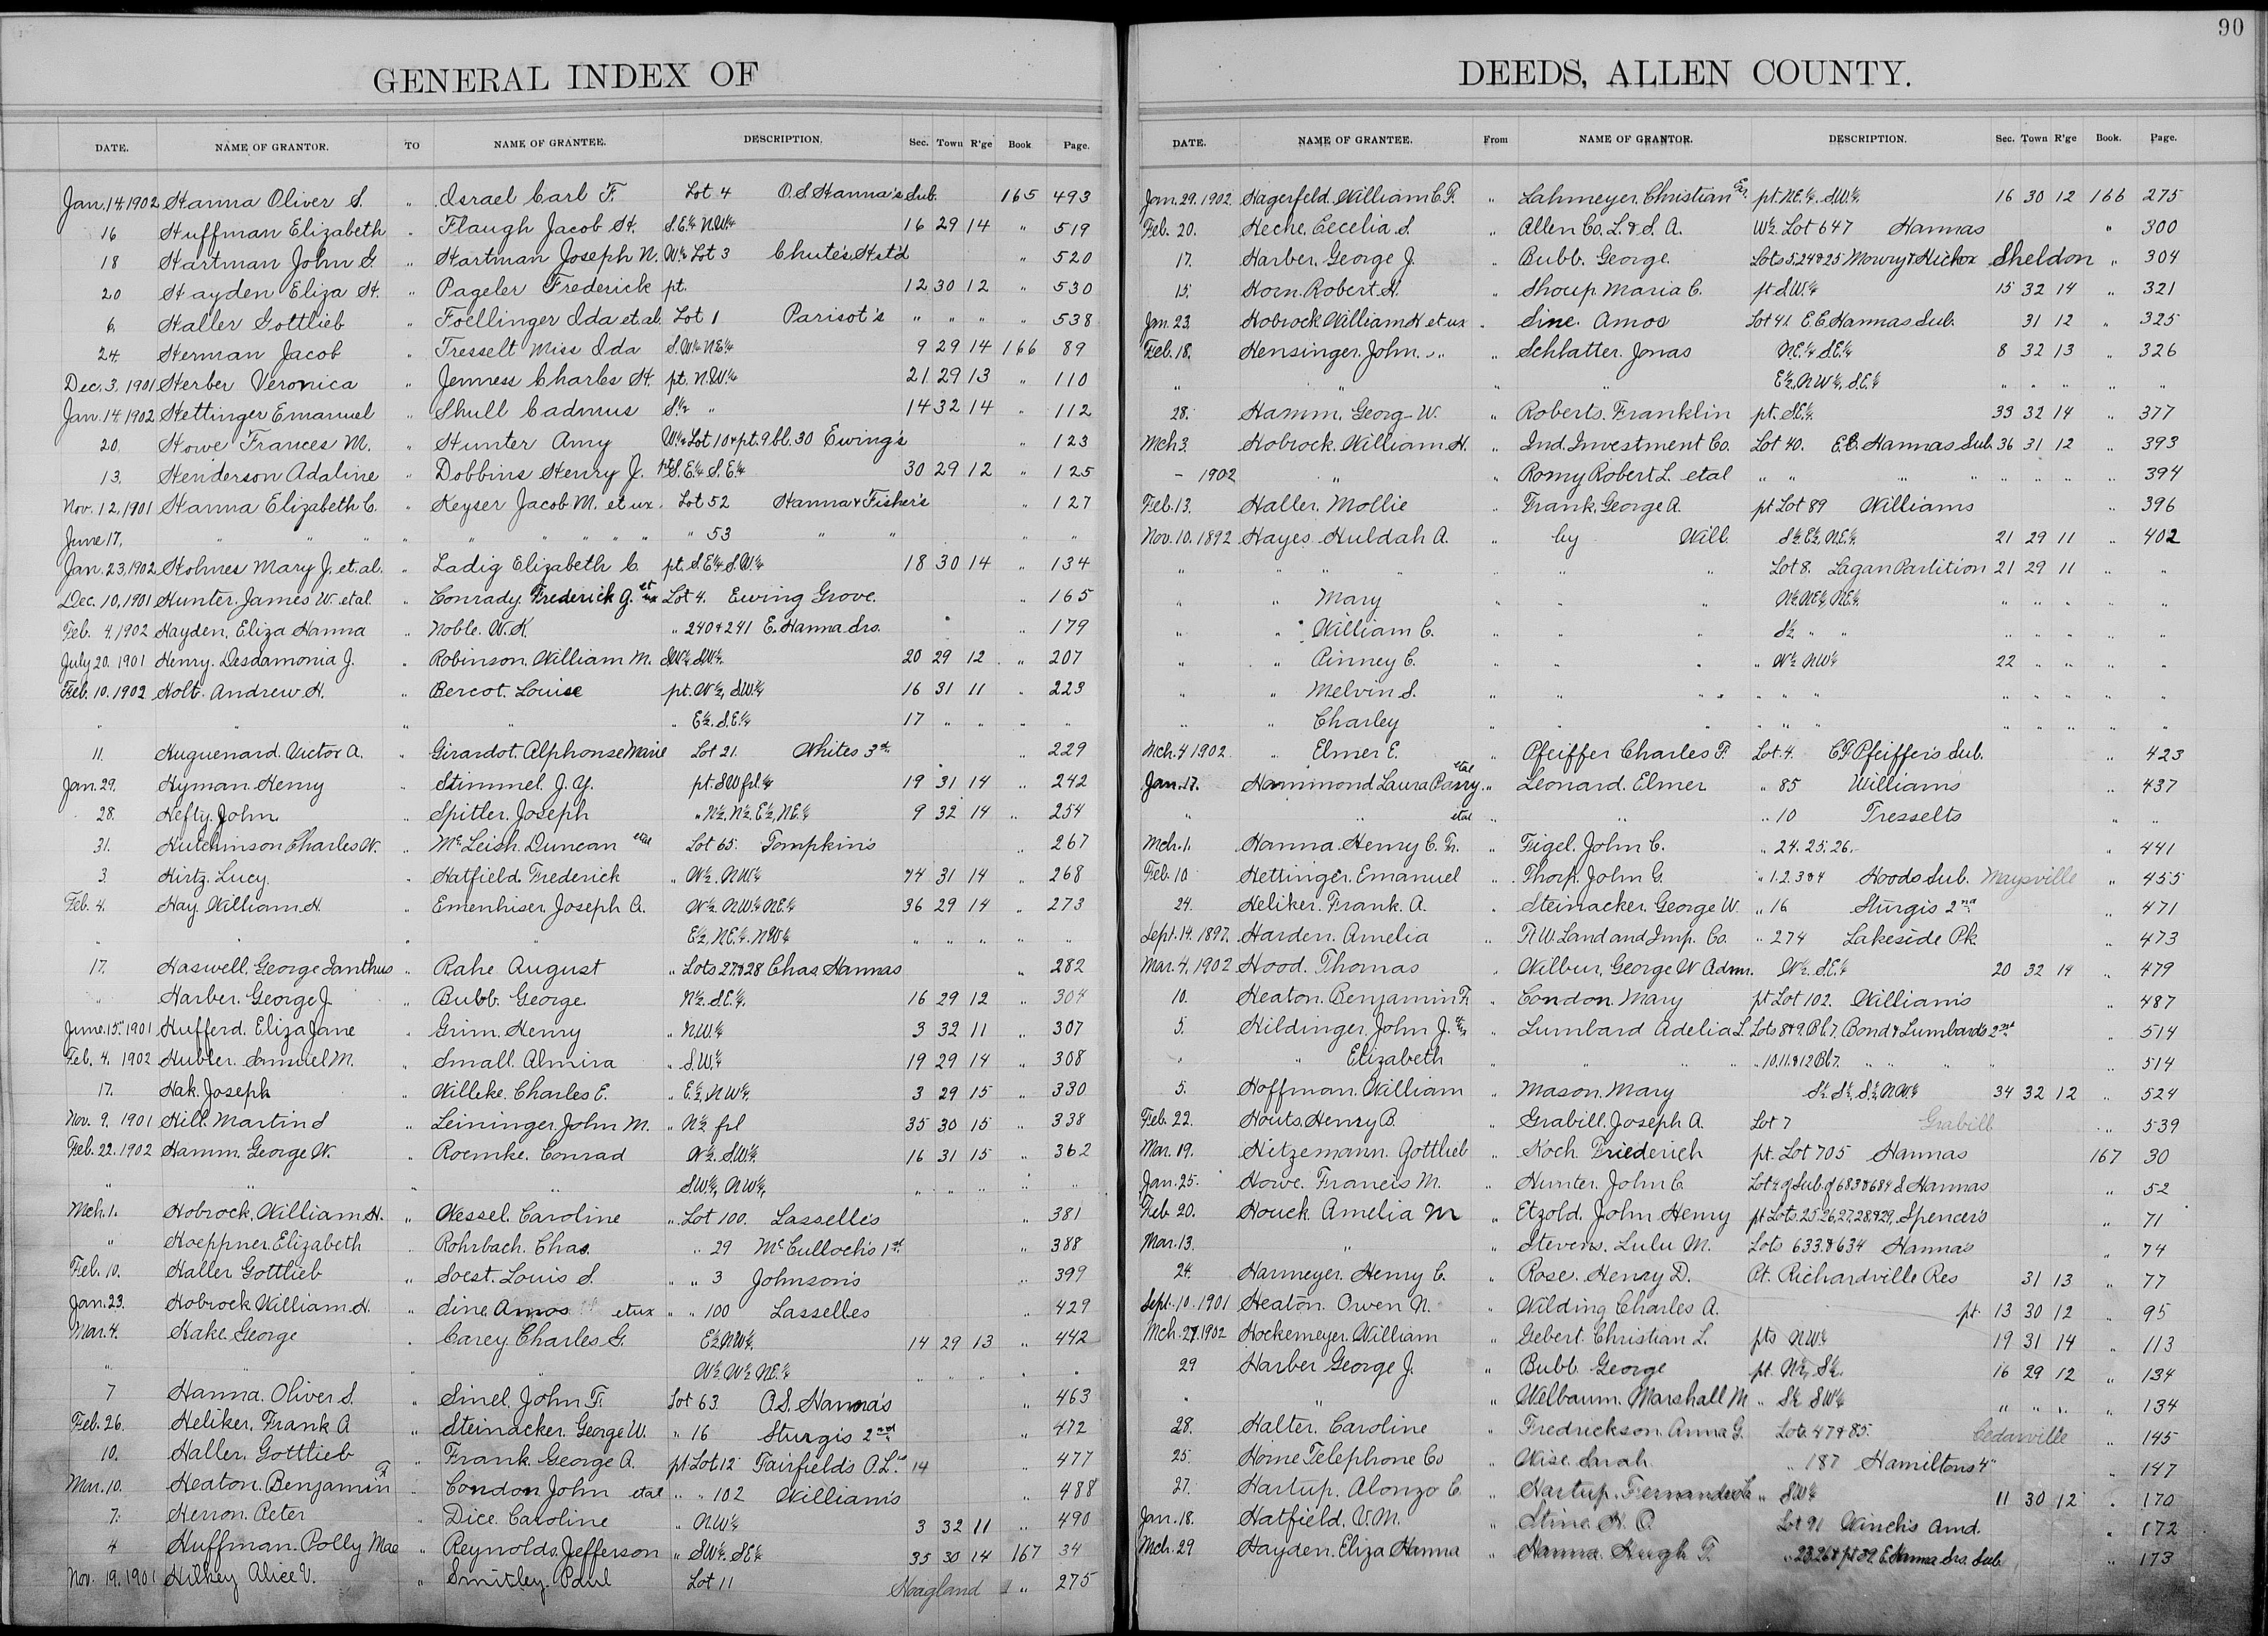 90
GENERAL INDEX OF
DATE. NAME OF GRANTOR. TO NAME OF GRANTEE. DESCRIPTION. Sec. Town R'ge Book Page.
Jan. 14. 1902 Hanna Oliver S. " Israel Carl F. Lot 4 O.S. Hanna's Sub. 165 493
16 Huffman Elizabeth " Flaugh Jacob H. S.E.¼ N.W.¼ 16 29 14 " 519
18 Hartman John G. " Hartman Joseph N. W.½ Lot 3 Chute's Hst'd " 520
20 Hayden Eliza H. " Pageler Frederick pt. 12 30 12 " 530
6. Haller Gottlieb " Foellinger Ida et.al. Lot 1 Parisot's " " " " 538
24. Herman Jacob " Tresselt Miss Ida S.W.¼ N.E.¼ 9 29 14 166 89
Dec. 3, 1901 Herber Veronica " Jenness Charles H. pt. N.W.¼ 21 29 13 " 110
Jan. 14. 1902 Hettinger Emanuel " Shull Cadmus S.½ " 14 32 14 " 112
20. Howe Frances M. " Hunter Amy W.½ Lot 10 & pt. 9 bl. 30 Ewing's " 123
13. Henderson Adaline " Dobbins Henry J. pt S.E.¼ S.E.¼ 30 29 12 " 125
Nov. 12, 1901 Hanna Elizabeth C. " Keyser Jacob M. et ux. Lot 52 Hanna & Fisher's " 127
June 17, " " " " " " " " " " 53 " " " "
Jan. 23, 1902 Holmes Mary J. et.al. " Ladig Elizabeth C. pt. S.E.¼ S.W.¼ 18 30 14 " 134
Dec. 10, 1901 Hunter. James W. et al. " Conrady. Frederick G. et ux Lot 4. Ewing Grove. " 165
Feb. 4. 1902 Hayden, Eliza Hanna " Noble. W.K. " 240 & 241 E. Hanna Srs. " 179
July 20. 1901 Henry. Desdamonia J. " Robinson. William M. S.W.¼ S.W.¼. 20 29 12 " 207
Feb. 10. 1902 Holt. Andrew H. " Bercot. Louise pt. W.½, S.W.¼ 16 31 11 " 223
" " " " " E.½. S.E.¼ 17 " " " "
11. Huguenard. Victor A. " Girardot. Alphonse Marie Lot 21. Whites 3rd " 229
Jan. 29. Hyman. Henry " Stimmel. J.Y. pt. S W frl. ¼ 19 31 14 " 242
28. Hefty. John " Spitler. Joseph " N.½, N.½, E.½, N.E.¼ 9 32 14 " 254
31. Hutchinson Charles W. " McLeish. Duncan et al Lot 65. Tompkin's " 267
3. Hirtz. Lucy. " Hatfield. Frederick " W.½. N.W.¼ 74 31 14 " 268
Feb. 4. Hay. William H. " Emenhiser. Joseph A. W.½. N.W.¼ N.E.¼ 36 29 14 " 273
" " " " E.½, N.E.¼. N.W.¼ " " " " "
17. Haswell. George Ianthus " Rahe August " Lots 27 & 28 Chas Hannas " 282
" Harber. George J. " Bubb. George. N.½. S.E.¼. 16 29 12 " 304
June 15. 1901 Hufferd. Eliza Jane " Grim. Henry " N.W.¼ 3 32 11 " 307
Feb. 4. 1902 Hubler. Samuel M. " Small. Almira " S.W.¼ 19 29 14 " 308
17. Hak. Joseph " Willeke. Charles E. " E.½, N.W.¼ 3 29 15 " 330
Nov. 9. 1901 Hill. Martin S " Leininger. John M. " N.½ frl 35 30 15 " 338
Feb. 22. 1902 Hamm. George W. " Roemke. Conrad W.½. S.W.¼ 16 31 15 " 362
" " " " S.W.¼, N.W.¼, " " " " "
Mch. 1. Hobrock, William H. " Wessel. Caroline " Lot 100. Lasselle's " 381
" Hoeppner. Elizabeth " Rohrbach. Chas. " 29 McCulloch's 1st. " 388
Feb. 10. Haller Gottlieb " Soest. Louis S. " " 3 Johnson's " 399
Jan. 23. Hobrock William H. " Sine Amos et ux " " 100 Lasselles " 429
Mar. 4. Hake George " Carey Charles G. E.½ N.W.¼. 14 29 13 " 442
" " " " W.½. W.½ N.E.¼ " " " " "
7 Hanna. Oliver S. " Sinel. John F. Lot 63. O.S. Hanna's " 463
Feb. 26. Heliker. Frank A " Steinacker. George W. " 16 Sturgis 2nd " 472
10. Haller. Gottlieb " Frank. George A. pt. Lot 12 Fairfield's O.L.s 14 " 477
Mar. 10. Heaton. Benjamin F " Condon John et al " " 102 William's " 488
7. Herron. Peter " Dice. Caroline " N.W.¼ 3 32 11 " 490
4 Huffman. Polly Mae " Reynolds. Jefferson " S.W.¼. S.E.¼ 35 30 14 167 34
Nov. 19. 1901 Hilkey Alice V. " Smitley. Paul Lot 11 Hoagland " 275
DEEDS, ALLEN COUNTY.
DATE. NAME OF GRANTEE. From NAME OF GRANTOR. DESCRIPTION. Sec. Town R'ge Book. Page.
Jan. 29. 1902. Hagerfeld. William C.F. " Lahmeyer. Christian Ex. pt. N.E.¼. S.W.¼. 16 30 12 166 275
Feb. 20. Heche. Cecelia S. " Allen Co. L. & S. A. W.½ Lot 647 Hannas " 300
17. Harber. George J. " Bubb. George. Lots 5, 24 & 25 Mowry & Hickox Sheldon " 304
15. Horn. Robert H. " Shoup. Maria C. pt S.W.¼ 15 32 14 " 321
Jan. 23. Hobrock William H et ux " Sine. Amos Lot 41. E.C. Hannas Sub. 31 12 " 325
Feb. 18. Hensinger. John. " " Schlatter. Jonas N.E.¼ S.E.¼ 8 32 13 " 326
" " " " E.½, N.W.¼, S.E.¼ " " " " "
28. Hamm. Georg W. " Roberts. Franklin pt. S.E.¼. 33 32 14 " 377
Mch 3. Hobrock. William H. " Ind. Investment Co. Lot 40. E.C. Hannas Sub. 36 31 12 " 393
- 1902 " " Romy Robert L. et al " " " " " " " " 394
Feb. 13. Haller. Mollie " Frank, George A. pt Lot 89 Williams " 396
Nov. 10. 1892 Hayes. Huldah A. " by Will S.½ E.½, N.E.¼. 21 29 11 " 402
" " " " " " " Lot 8. Lagan Partition 21 29 11 " "
" " Mary " " " N.½ N.E.¼, N.E.¼. " " " " "
" " William C. " " " S.½ " " " " " " "
" " Pinney C. " " " " W.½ N.W.¼ 22 " " " "
" " Melvin S. " " " " " " " " " " "
" " Charley " " " " " " " " " " "
Mch. 4 1902. " Elmer E. " Pfeiffer Charles F. Lot. 4. C.F. Pfeiffer's Sub. " 423
Jan. 17. Hammond Laura Parry et al " Leonard. Elmer " 85 Williams " 437
" " et al " " " 10 Tresselts " "
Mch. 1. Hanna. Henry C. Tr. " Feigel. John C. " 24. 25. 26. " 441
Feb. 10 Hettinger. Emanuel " Thorp. John G. " 1. 2. 3 & 4 Hoods Sub. Maysville " 455
24. Heliker. Frank. A. " Steinacker. George W. " 16 Sturgis 2nd " 471
Sept. 14. 1897. Harden. Amelia Ft W. Land and Imp. Co. " 274 Lakeside Pk. " 473
Mar. 4, 1902 Hood. Thomas " Wilbur, George W Admr. W.½. S.E.¼ 20 32 14 " 479
10. Heaton. Benjamin F. " Condon. Mary pt Lot 102. William's " 487
5. Hildinger, John J. " Lumbard Adelia L. Lots 8 & 9. Bl. 7. Bond & Lumbards 2nd " 514
" " Elizabeth " " " " 10. 11. & 12 Bl 7. " " " " 514
5. Hoffman. William " Mason. Mary S.½. S.½, S.½, N.W.¼ 34 32 12 " 524
Feb. 22. Houts. Henry B. " Grabill. Joseph A. Lot 7 Grabill " 539
Mar. 19. Hitzemann. Gottlieb " Koch. Friederich pt. Lot 705 Hannas 167 30
Jan. 25. Howe. Francis M. " Hunter. John C. Lot 2 of Sub. of 683 & 684 S. Hannas " 52
Feb. 20. Houck. Amelia M " Etzold. John Henry pt Lots. 25. 26, 27, 28, & 29, Spencer's " 71
Mar. 13. " " Stevens. Lulu M. Lots 633. & 634 Hanna's " 74
24. Harmeyer. Henry C. " Rose. Henry D. Pt. Richardville Res 31 13 " 77
Sept. 10. 1901 Heaton. Owen N. " Wilding Charles A. pt. 13 30 12 " 95
Mch. 27. 1902 Hockemeyer. William " Gebert. Christian L. pts N.W.¼ 19 31 14 " 113
29 Harber George J. " Bubb. George pt. N.½, S.½. 16 29 12 " 134
" " " Welbaum. Marshall M " S.½ S.W.¼ " " " " 134
28. Halter. Caroline " Fredrickson. Anna G. Lots 47 & 85. Cedarville " 145
25. Home Telephone Co " Wise. Sarah " 187 Hamiltons 4th " 147
27. Hartup. Alonzo C. " Hartup. " S.W.¼ 11 30 12 " 170
Jan. 18. Hatfield. V.M. " Stine. H. O. Lot 91 Winch's Amd. " 172
Mch. 29 Hayden. Eliza Hanna " Hanna. Hugh T. " 23, 26 & pt 39. E. Hanna Srs. Sub. " 173